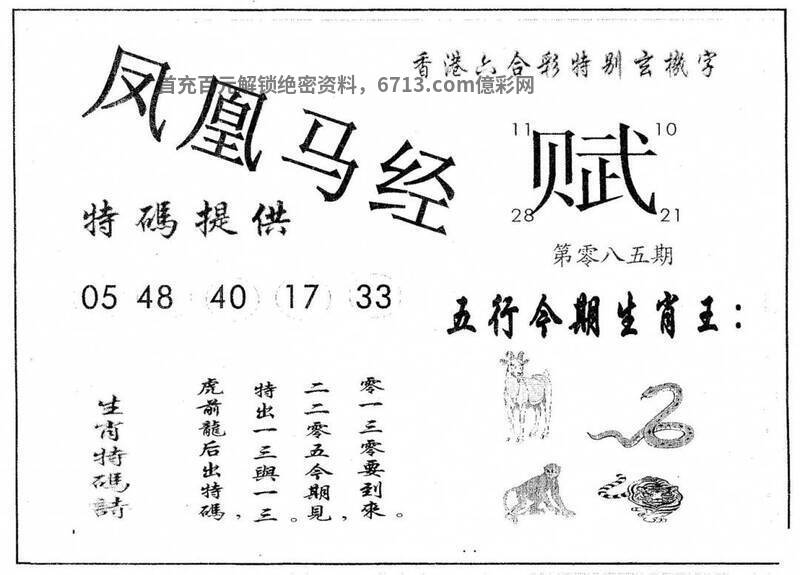 香港六合彩特别玄機字
首充百元解锁绝密资料，6713.com億彩网
凤凰马经
11 10
赋
28 21
特碼提供
第零八五期
05 48 40 17 33
五行今期生肖王：
生肖特碼詩
虎前龍后出特碼，
特出一三與一三。
二二零五今期見，
零一三零要到來。